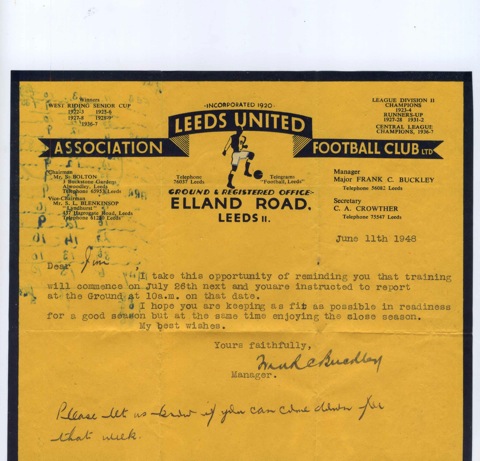 Winners
WEST RIDING SENIOR CUP
1936-7
·INCORPORATED 1920·
LEEDS UNITED
ASSOCIATION
FOOTBALL CLUB LTD
LEAGUE DIVISION II
CHAMPIONS
1923-4
RUNNERS-UP
1927-28 1931-2
CENTRAL LEAGUE
CHAMPIONS, 1936-7
Chairman
Mr. S. BOLTON
Alwoodley, Leeds
Telephone
Vice-Chairman
Mr. S. L. BLENKINSOP
"Lyndhurst"
Harrogate Road, Leeds
Telephone
Telephone
76037 Leeds
Telegrams
"Football, Leeds"
GROUND & REGISTERED OFFICE-
ELLAND ROAD,
LEEDS 11.
Manager
Major FRANK C. BUCKLEY
Telephone 56082 Leeds
Secretary
C. A. CROWTHER
Telephone 75547 Leeds
June 11th 1948
Dear Jim
I take this opportunity of reminding you that training
will commence on July 26th next and youare instructed to report
at the Ground at 10a.m. on that date.
I hope you are keeping as fit as possible in readiness
for a good season but at the same time enjoying the close season.
My best wishes.
Yours faithfully,
Frank C Buckley
Manager.
Please let us know if you can come down for
that week.